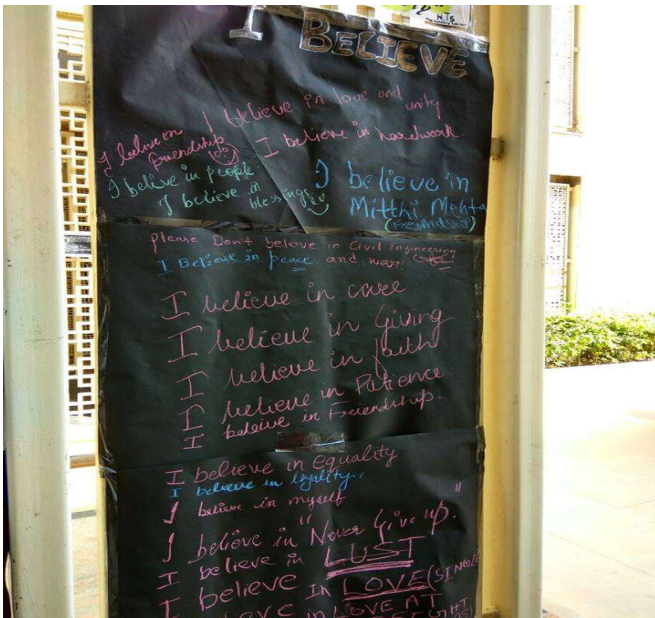 N.T.S
I BELIEVE
I believe in love and unity
I believe in hardwork.
I believe in
friendship
I believe in people
I believe in
blessings
I believe in
Mitthi Mehta
Please Don't believe in Civil Engineering
I Believe in peace and war.
I believe in care
I believe in Giving
I believe in faith
I believe in Patience
I beleive in Friendship.
I believe in equality
I believe in loyality.
I believe in myself
I believe in "Never Give up."
I believe in LUST
I believe IN LOVE (SINGLE
in LOVE AT